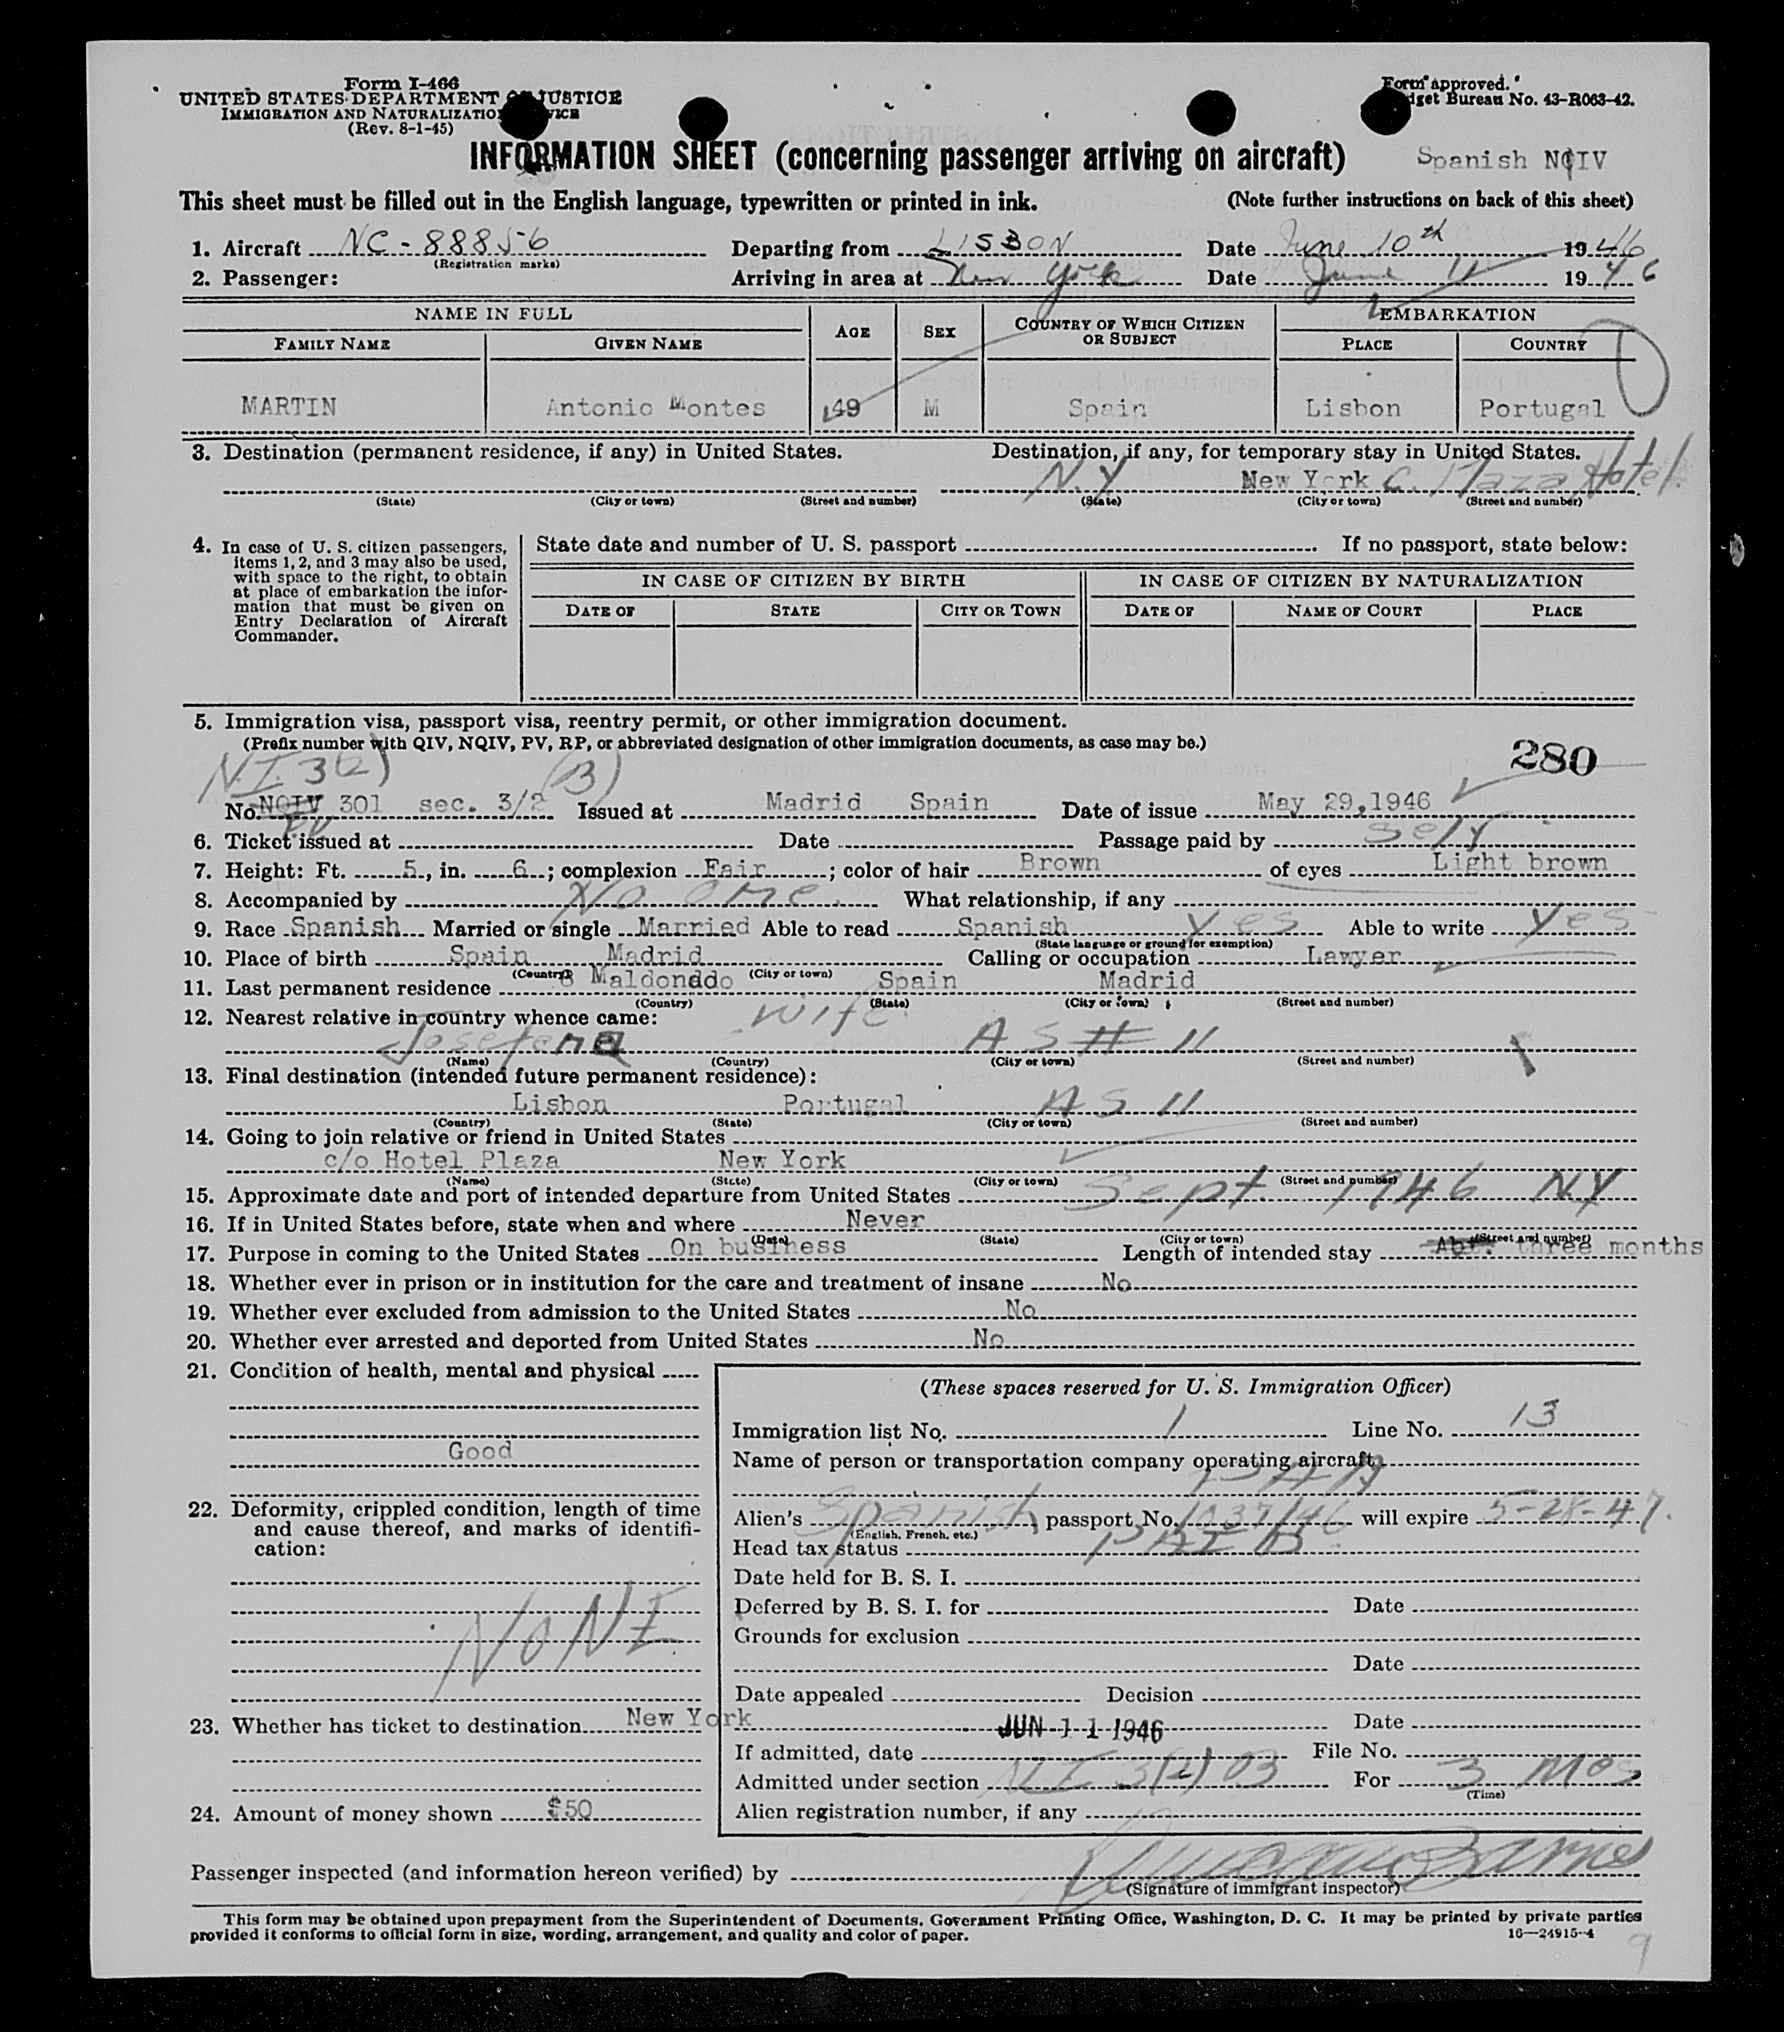 Form I-466
UNITED STATES DEPARTMENT OF JUSTICE
IMMIGRATION AND NATURALIZATION SERVICE
(Rev. 8-1-45)
Form approved.
Budget Bureau No. 43-R063-42.
INFORMATION SHEET (concerning passenger arriving on aircraft) Spanish NQIV
This sheet must be filled out in the English language, typewritten or printed in ink. (Note further instructions on back of this sheet)
1. Aircraft NC-88856 Departing from LISBON Date June 10th 1946
(Registration marks)
2. Passenger: Arriving in area at New York Date June 11 1946
NAME IN FULL AGE SEX COUNTRY OF WHICH CITIZEN OR SUBJECT EMBARKATION
FAMILY NAME GIVEN NAME PLACE COUNTRY
MARTIN Antonio Montes 49 M Spain Lisbon Portugal
3. Destination (permanent residence, if any) in United States. Destination, if any, for temporary stay in United States.
N.Y New York Plaza Hotel
(State) (City or town) (Street and number) (State) (City or town) (Street and number)
4. In case of U. S. citizen passengers, items 1, 2, and 3 may also be used, with space to the right, to obtain at place of embarkation the information that must be given on Entry Declaration of Aircraft Commander.
State date and number of U. S. passport If no passport, state below:
IN CASE OF CITIZEN BY BIRTH IN CASE OF CITIZEN BY NATURALIZATION
DATE OF STATE CITY OR TOWN DATE OF NAME OF COURT PLACE
5. Immigration visa, passport visa, reentry permit, or other immigration document.
(Prefix number with QIV, NQIV, PV, RP, or abbreviated designation of other immigration documents, as case may be.)
280
N.I 3(2) (B)
No. NQIV 301 sec. 3/2 Issued at Madrid Spain Date of issue May 29,1946
PV
6. Ticket issued at Date Passage paid by Self
7. Height: Ft. 5, in. 6; complexion Fair; color of hair Brown of eyes Light brown
8. Accompanied by No one What relationship, if any
9. Race Spanish Married or single Married Able to read Spanish Yes Able to write Yes
(State language or ground for exemption)
10. Place of birth Spain Madrid Calling or occupation Lawyer
(Country) (City or town)
11. Last permanent residence 8 Maldonddo Spain Madrid
(Country) (State) (City or town) (Street and number)
12. Nearest relative in country whence came: Wife
Josefena AS # 11
(Name) (Country) (City or town) (Street and number)
13. Final destination (intended future permanent residence):
Lisbon Portugal AS 11
(Country) (State) (City or town) (Street and number)
14. Going to join relative or friend in United States
c/o Hotel Plaza New York
(Name) (State) (City or town) (Street and number)
15. Approximate date and port of intended departure from United States Sept. 1946 NY
16. If in United States before, state when and where Never
(Date) (State) (City or town) (Street and number)
17. Purpose in coming to the United States On business Length of intended stay Abt. three months
18. Whether ever in prison or in institution for the care and treatment of insane No
19. Whether ever excluded from admission to the United States No
20. Whether ever arrested and deported from United States No
21. Condition of health, mental and physical
Good
22. Deformity, crippled condition, length of time and cause thereof, and marks of identification:
NONE
23. Whether has ticket to destination New York
24. Amount of money shown $50
(These spaces reserved for U. S. Immigration Officer)
Immigration list No. 1 Line No. 13
Name of person or transportation company operating aircraft
PAA
Alien's Spanish passport No. 1037/46 will expire 5-28-47.
(English, French, etc.)
Head tax status PAID
Date held for B. S. I.
Deferred by B. S. I. for Date
Grounds for exclusion
Date
Date appealed Decision
Date
JUN 11 1946
If admitted, date File No.
Admitted under section NI 3(2) 03 For 3 Mos
(Time)
Alien registration number, if any
Passenger inspected (and information hereon verified) by
(Signature of immigrant inspector)
This form may be obtained upon prepayment from the Superintendent of Documents, Government Printing Office, Washington, D. C. It may be printed by private parties
provided it conforms to official form in size, wording, arrangement, and quality and color of paper. 16—24915-4
9